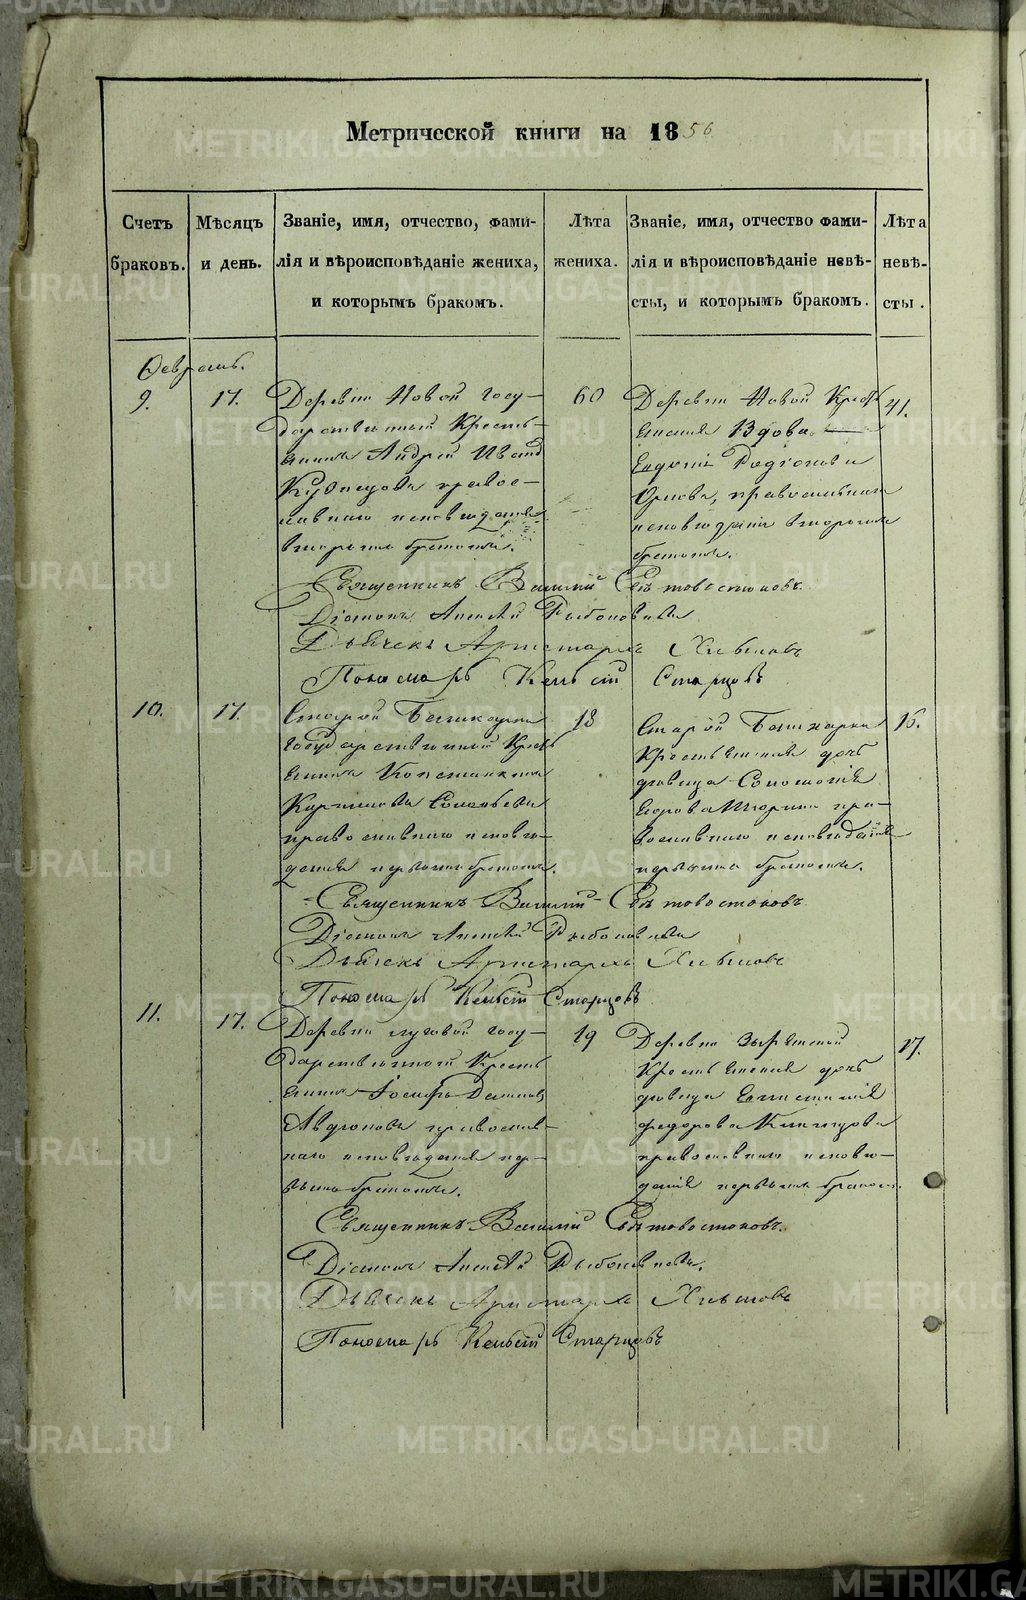 Метрической книги на 1856
Счетъ браковъ.
Мѣсяцъ и день.
Званіе, имя, отчество, фами-
лія и вѣроисповѣданіе жениха,
и которымъ бракомъ.
Лѣта жениха.
Званіе, имя, отчество фами-
лія и вѣроисповѣданіе невѣ-
сты, и которымъ бракомъ.
Лѣта невѣ-
сты.
Февраль.
9.
17.
Деревни Новой Госу-
дарственный Кресть-
янинъ Андрей Иванъ
Кузнецовъ правос-
лавнаго исповѣданія
вторымъ бракомъ.
60
Деревни Новой Кресть
янская Вдова
Евдокія Родіонова
Орлова, православнаго
исповѣданія вторымъ
бракомъ.
41.
Священникъ Василій Свѣтовостоковъ.
Діаконъ Алексѣй
Дьячекъ Аристархъ Хлыновъ
Пономарь Старцовъ
10.
17.
Старой Башкарки
Государственный Кресть
янинъ Константинъ
Кириловъ
православнаго исповѣ-
данія первымъ бракомъ.
18
Старой Башкарки
Крестьянская дочь
дѣвица Соломонія
Егорова пра-
вославнаго исповѣданія
первымъ бракомъ.
16.
Священникъ Василій Свѣтовостоковъ
Діаконъ Алексѣй
Дьячекъ Аристархъ Хлыновъ
Пономарь Старцовъ
11.
17.
Деревни Луговой Госу-
дарственный Кресть
янинъ Іосифъ
Авдюковъ православ-
наго исповѣданія пер-
вымъ бракомъ.
19
Деревни Зырянской
Крестьянская дочь
дѣвица
Федорова
православнаго исповѣ-
данія первымъ бракомъ.
17.
Священникъ Василій Свѣтовостоковъ.
Діаконъ Алексѣй
Дьячекъ Аристархъ Хлыновъ
Пономарь Старцовъ
METRIKI.GASO-URAL.RU